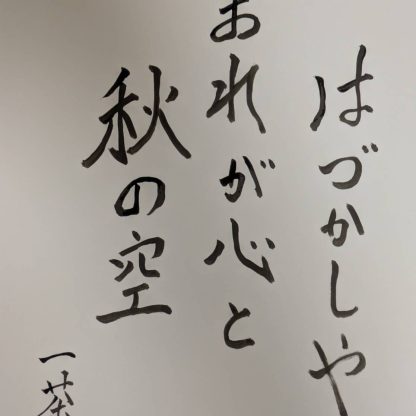 はづかしや
おれが心と
秋の空
一茶